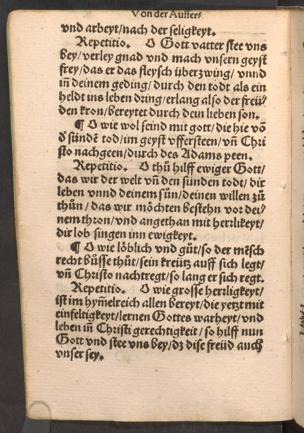 Von der Aufferſ
vnd arbeyt/nach der ſeligkeyt.
Repetitio. O Gott vatter ſtee vns
bey/verley gnad vnd mach vnſern geyſt
frey/das er das fleyſch überzwing/ vnnd
in̄ deinem geding/durch den todt als ein
heldt ins leben dring/erlang alſo der freü/
den kron/bereytet durch dein lieben ſon.
¶ O wie wol ſeind mit gott/die hie vō
d̓ ſündē tod/im geyſt vfferſteen/vn̄ Chri
ſto nachgeen/durch des Adams peen.
Repetitio. O thů hilff ewiger Gott/
das wir der welt vn̄ den ſünden todt/dir
leben vnnd deinem ſün/deinen willen zů
thůn/ das wir möchten beſtehn vor dei/
nem thron/vnd angethan mit herrlikeyt/
dir lob ſingen inn ewigkeyt.
¶ O wie löblich vnd gůt/ſo der mēſch
recht bůſſe thůt/ſein kreütz auff ſich legt/
vn̄ Chriſto nachtregt/ſo lang er ſich regt.
Repetitio. O wie groſſe herrligkeyt/
iſt im hym̄elreich allen bereyt/die yetzt mit
einfeltigkeyt/lernen Gottes warheyt/vnd
leben in̄ Chriſti gerechtigkeit/ſo hilff nun
Gott vnd ſtee vns bey/dz diſe freüd auch
vnſer ſey.